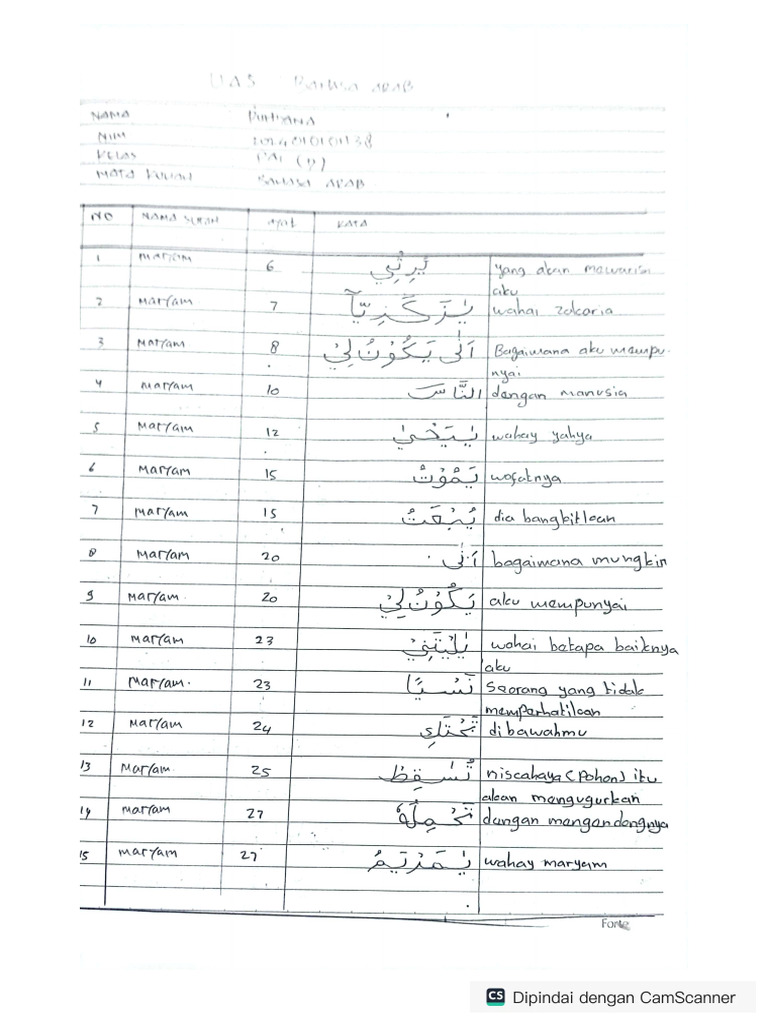 UAS Bahasa ARAB
NAMA
NIM
KELAS PAI (D)
MATA KULIAH BAHASA ARAB
NO NAMA SURAH ayat KATA
1 Maryam 6 يَرِثُنِي yang akan mewarisi
aku
2 Maryam 7 يٰزَكَرِيَّآ wahai zakaria
3 Maryam 8 اَنّٰى يَكُوْنُ لِيْ Bagaimana aku mempu-
nyai
4 Maryam 10 النَّاسَ dengan manusia
5 Maryam 12 يٰيَحْيٰى wahay yahya
6 Maryam 15 يَمُوْتُ wafatnya
7 Maryam 15 يُبْعَثُ dia bangkitkan
8 Maryam 20 اَنّٰى bagaimana mungkin
9 Maryam 20 يَكُوْنُ لِيْ aku mempunyai
10 Maryam 23 يٰلَيْتَنِيْ wahai betapa baiknya
aku
11 Maryam 23 نَسْيًا Seorang yang tidak
memperhatikan
12 Maryam 24 تَحْتَكِ dibawahmu
13 Maryam 25 تُسٰقِطْ niscahaya (Pohon) itu
akan mengugurkan
14 Maryam 27 تَحْمِلُهٗ dengan mengandongnya
15 Maryam 27 يٰمَرْيَمُ wahay maryam
Forte
CS Dipindai dengan CamScanner